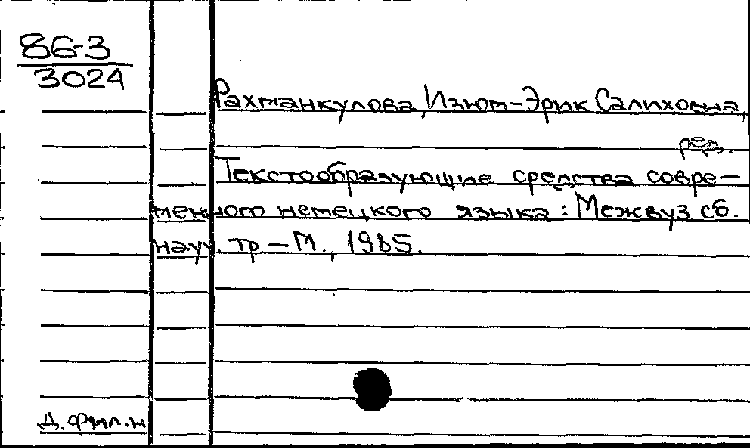 86-3
3024
Рахманкулова, Изюм-Эрик Салиховна,
ред.
Текстообразующие средства совре-
менного немецкого языка: Межвуз сб.
науч. тр – М., 1985.
Д. Фил. н